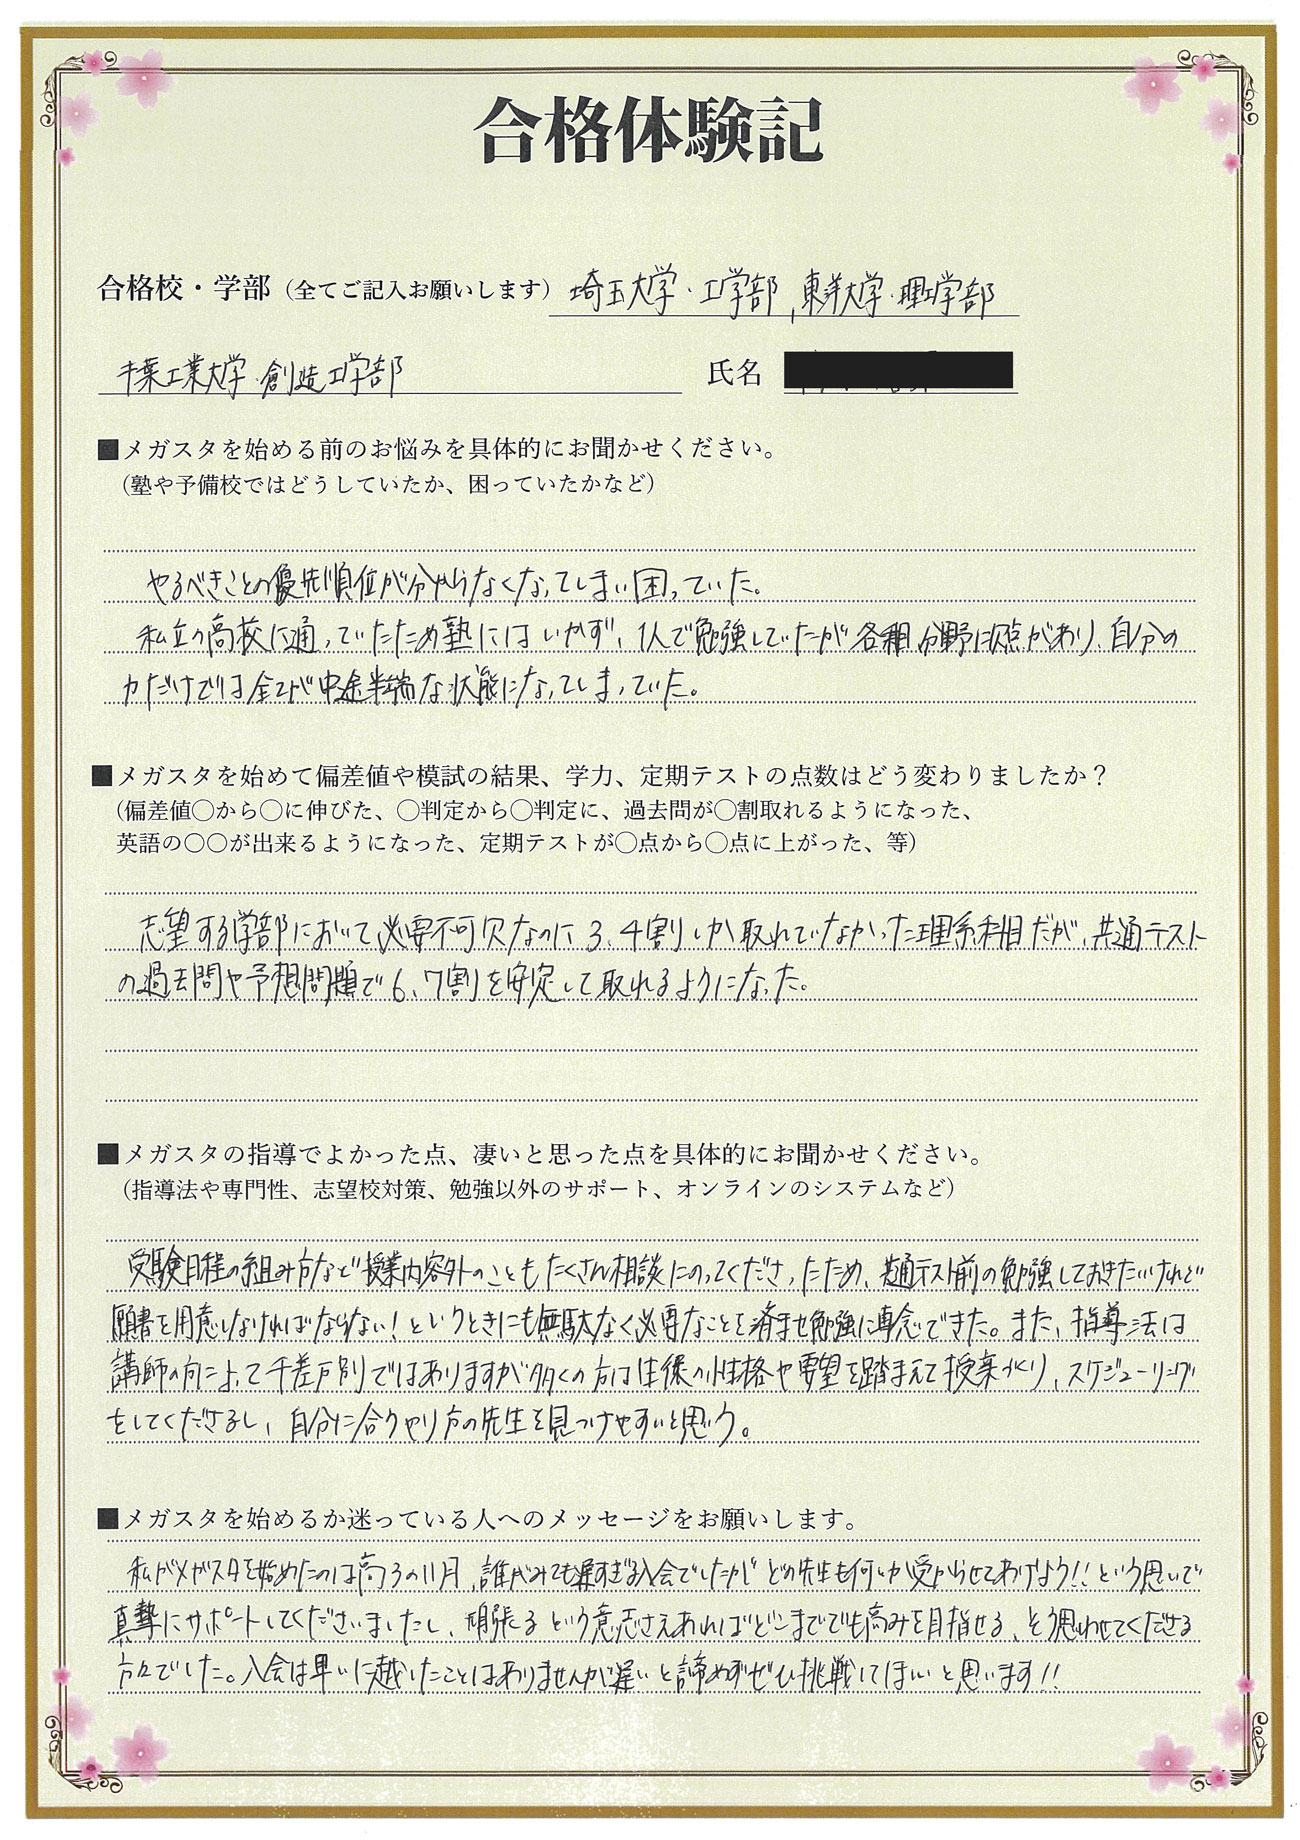 合格体験記
合格校・学部（全てご記入お願いします）埼玉大学・工学部, 東洋大学・理工学部
千葉工業大学・創造工学部 氏名
■メガスタを始める前のお悩みを具体的にお聞かせください。
（塾や予備校ではどうしていたか、困っていたかなど）
やるべきことの優先順位が分からなくなってしまい困っていた。
私立の高校に通っていたため塾にはいかず、1人で勉強していたが各種分野に欠点があり、自分の
力だけでは全てが中途半端な状態になってしまっていた。
■メガスタを始めて偏差値や模試の結果、学力、定期テストの点数はどう変わりましたか？
（偏差値〇から〇に伸びた、〇判定から〇判定に、過去問が〇割取れるようになった、
英語の〇〇が出来るようになった、定期テストが〇点から〇点に上がった、等）
志望する学部において必要不可欠なのに3、4割しか取れていなかった理系科目だが、共通テスト
の過去問や予想問題で6、7割を安定して取れるようになった。
■メガスタの指導でよかった点、凄いと思った点を具体的にお聞かせください。
（指導法や専門性、志望校対策、勉強以外のサポート、オンラインのシステムなど）
受験日程の組み方など授業内容外のこともたくさん相談にのってくださったため、共通テスト前の勉強しておきたいけれど
願書を用意しなければならない！というときにも無駄なく必要なことを済ませ勉強に専念できた。また、指導法は
講師の方によって千差万別ではありますが多くの方は生徒の性格や要望を踏まえて授業づくり、スケジューリング
をしてくださるし、自分に合うやり方の先生を見つけやすいと思う。
■メガスタを始めるか迷っている人へのメッセージをお願いします。
私がメガスタを始めたのは高3の11月、誰がみても遅すぎる入会でしたがどの先生も何とか受からせてあげよう!!という思いで
真摯にサポートしてくださいましたし、頑張るという意志さえあればどこまででも高みを目指せる、そう思わせてくださる
方々でした。入会は早いに越したことはありませんが遅いと諦めずぜひ挑戦してほしいと思います!!